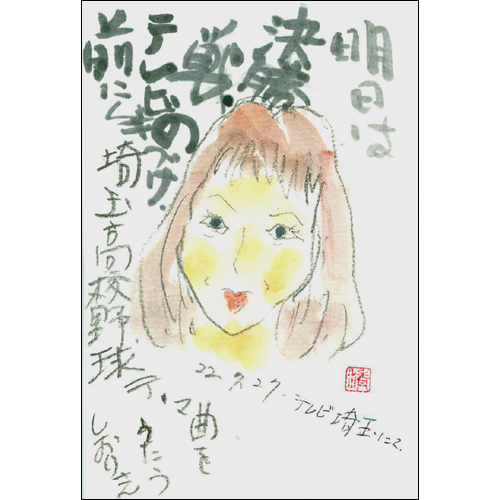 明日は
決勝
戦.
テレビの
前にくぎづけ.
埼玉高校野球
テーマ曲を
うたう
しおりさん
22.7.27.
テレビ埼玉にて.